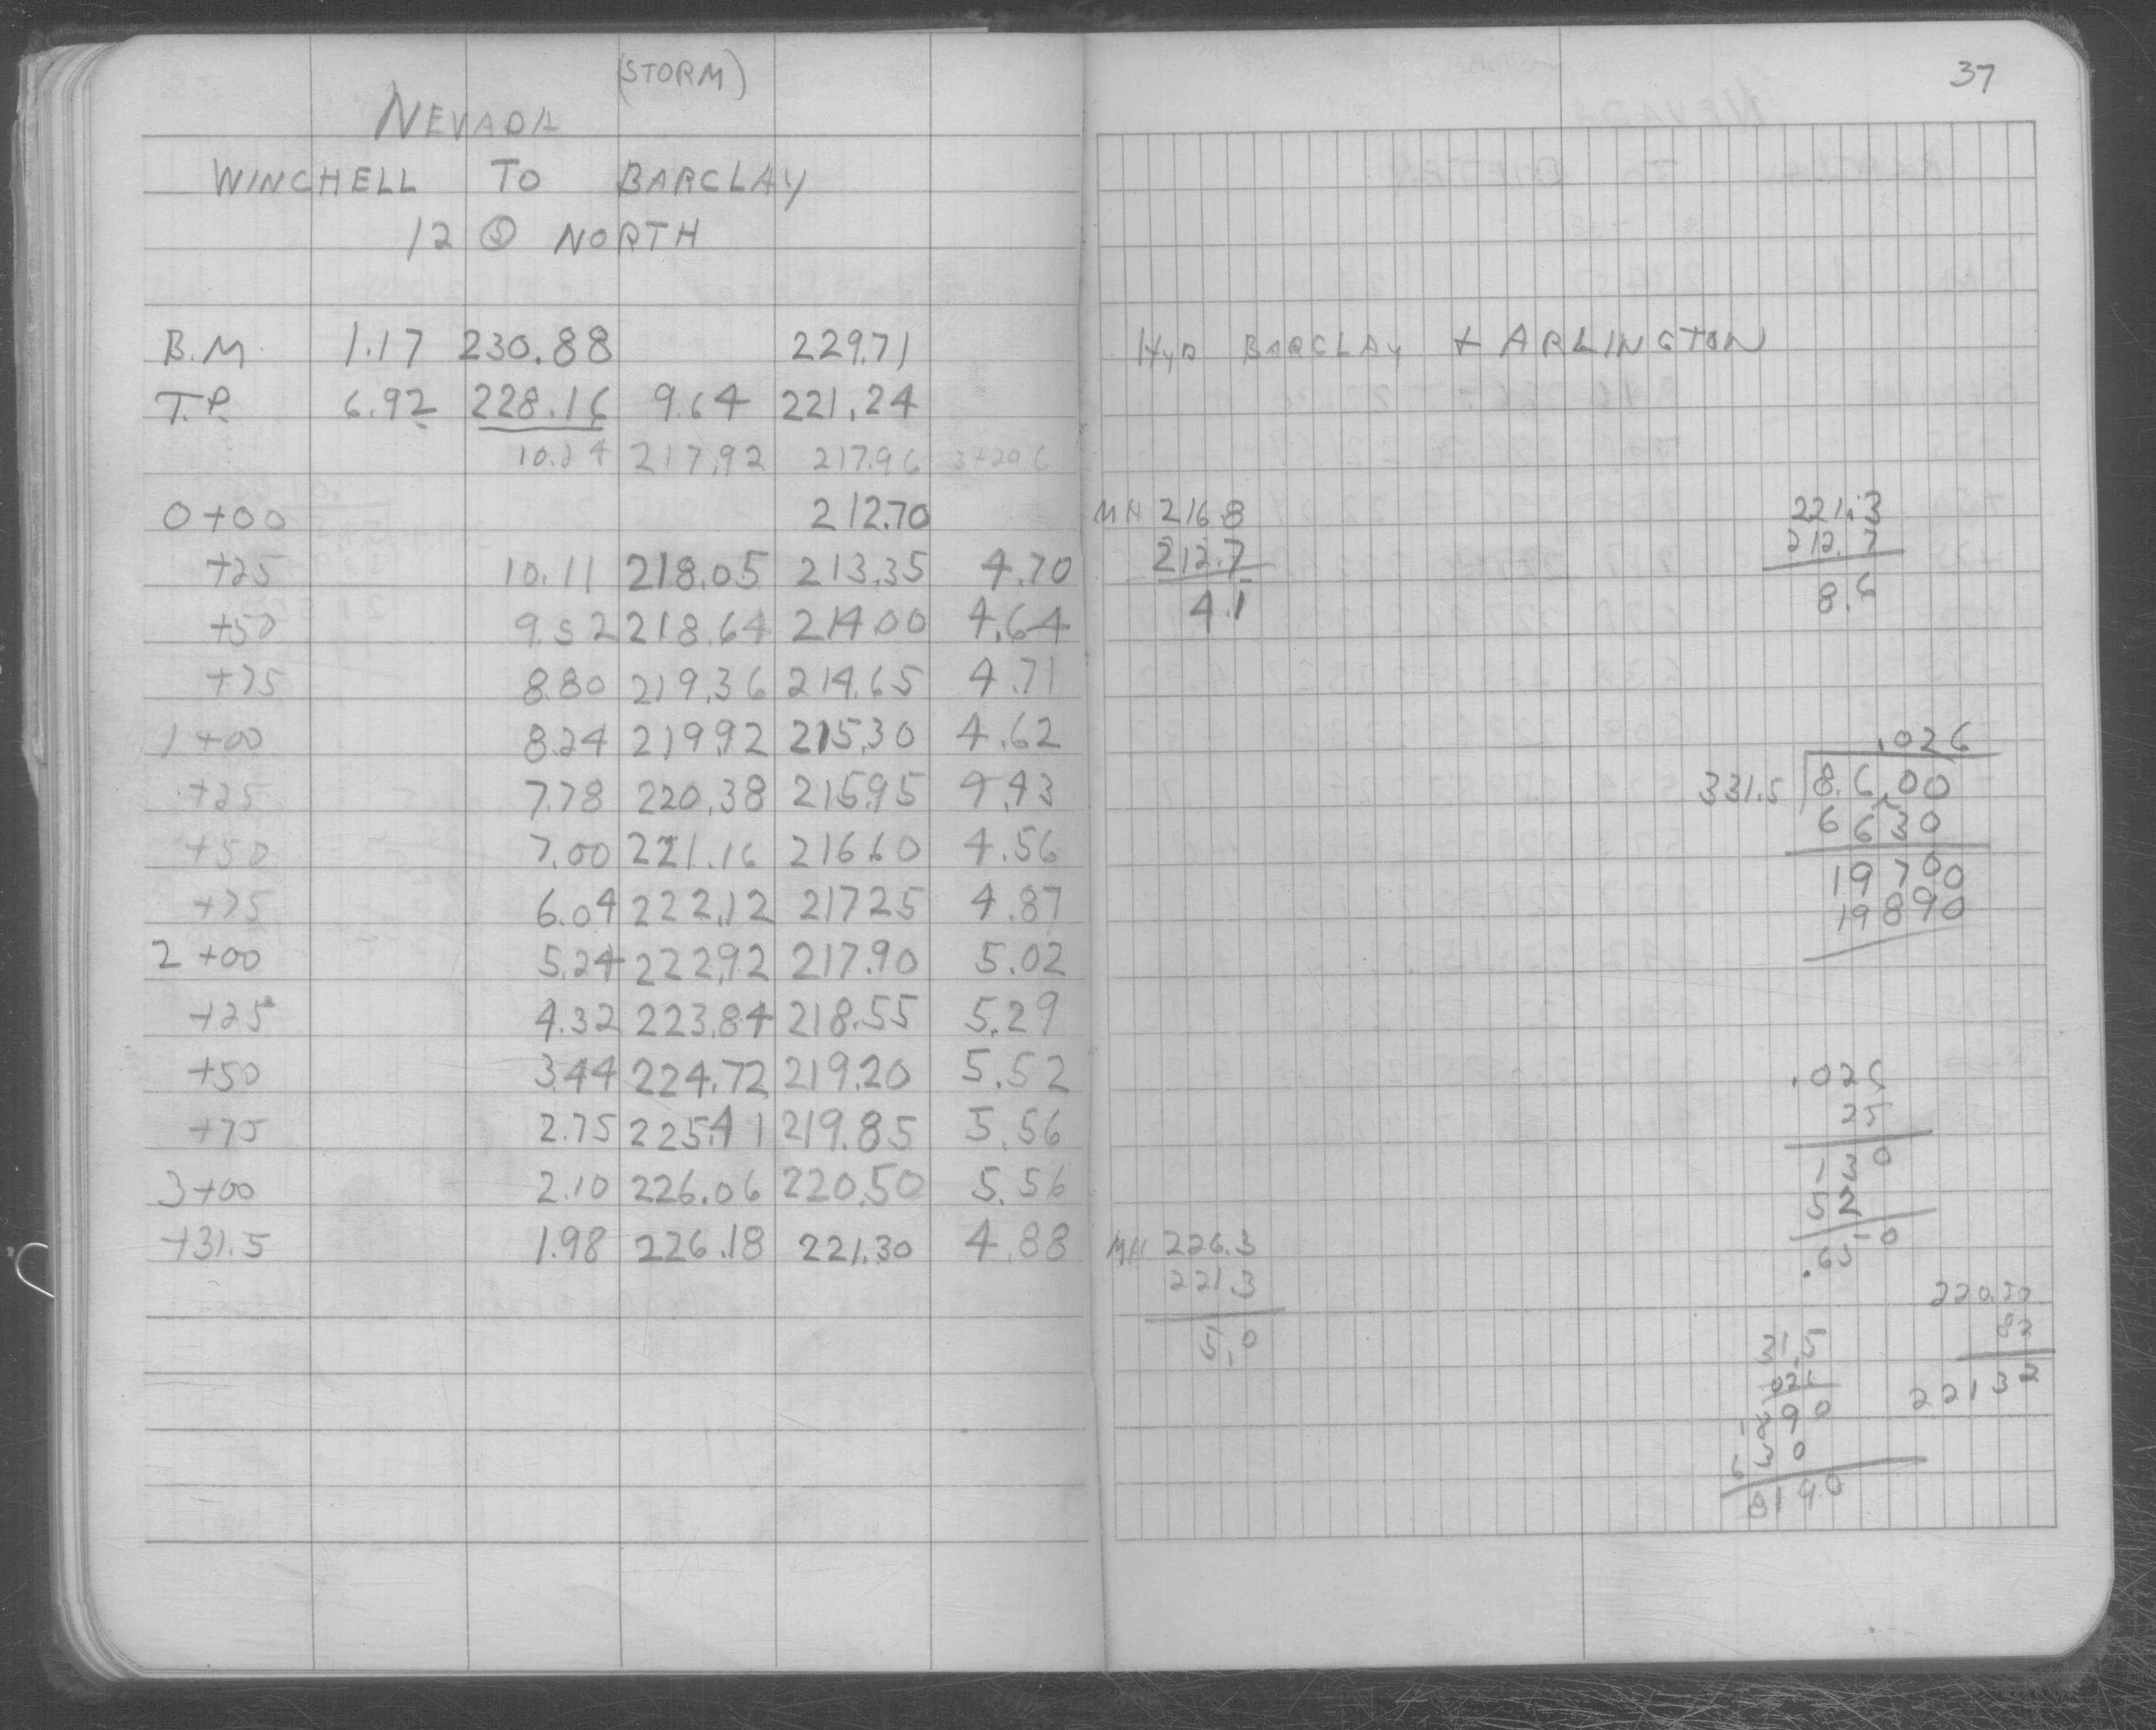 (STORM)
NEVADA
WINCHELL TO BARCLAY
12 @ NORTH
B.M. 1.17 230.88 229.71
T.P. 6.92 228.16 9.64 221.24
10.24 217.92 217.96 3+20.6
0+00 212.70
+25 10.11 218.05 213.35 4.70
+50 9.52 218.64 214.00 4.64
+75 8.80 219.36 214.65 4.71
1+00 8.24 219.92 215.30 4.62
+25 7.78 220.38 215.95 4.43
+50 7.00 221.16 216.60 4.56
+75 6.04 222.12 217.25 4.87
2+00 5.24 222.92 217.90 5.02
+25 4.32 223.84 218.55 5.29
+50 3.44 224.72 219.20 5.52
+75 2.75 225.41 219.85 5.56
3+00 2.10 226.06 220.50 5.56
+31.5 1.98 226.18 221.30 4.88
37
HYD BARCLAY + ARLINGTON
MH 216.8
212.7
4.1
221.3
212.7
8.6
.026
331.5 8.6.00
6630
19700
19890
.026
25
130
52
.650
MH 226.3
221.3
5.0
220.50
82
22132
31.5
.026
1890
630
8190